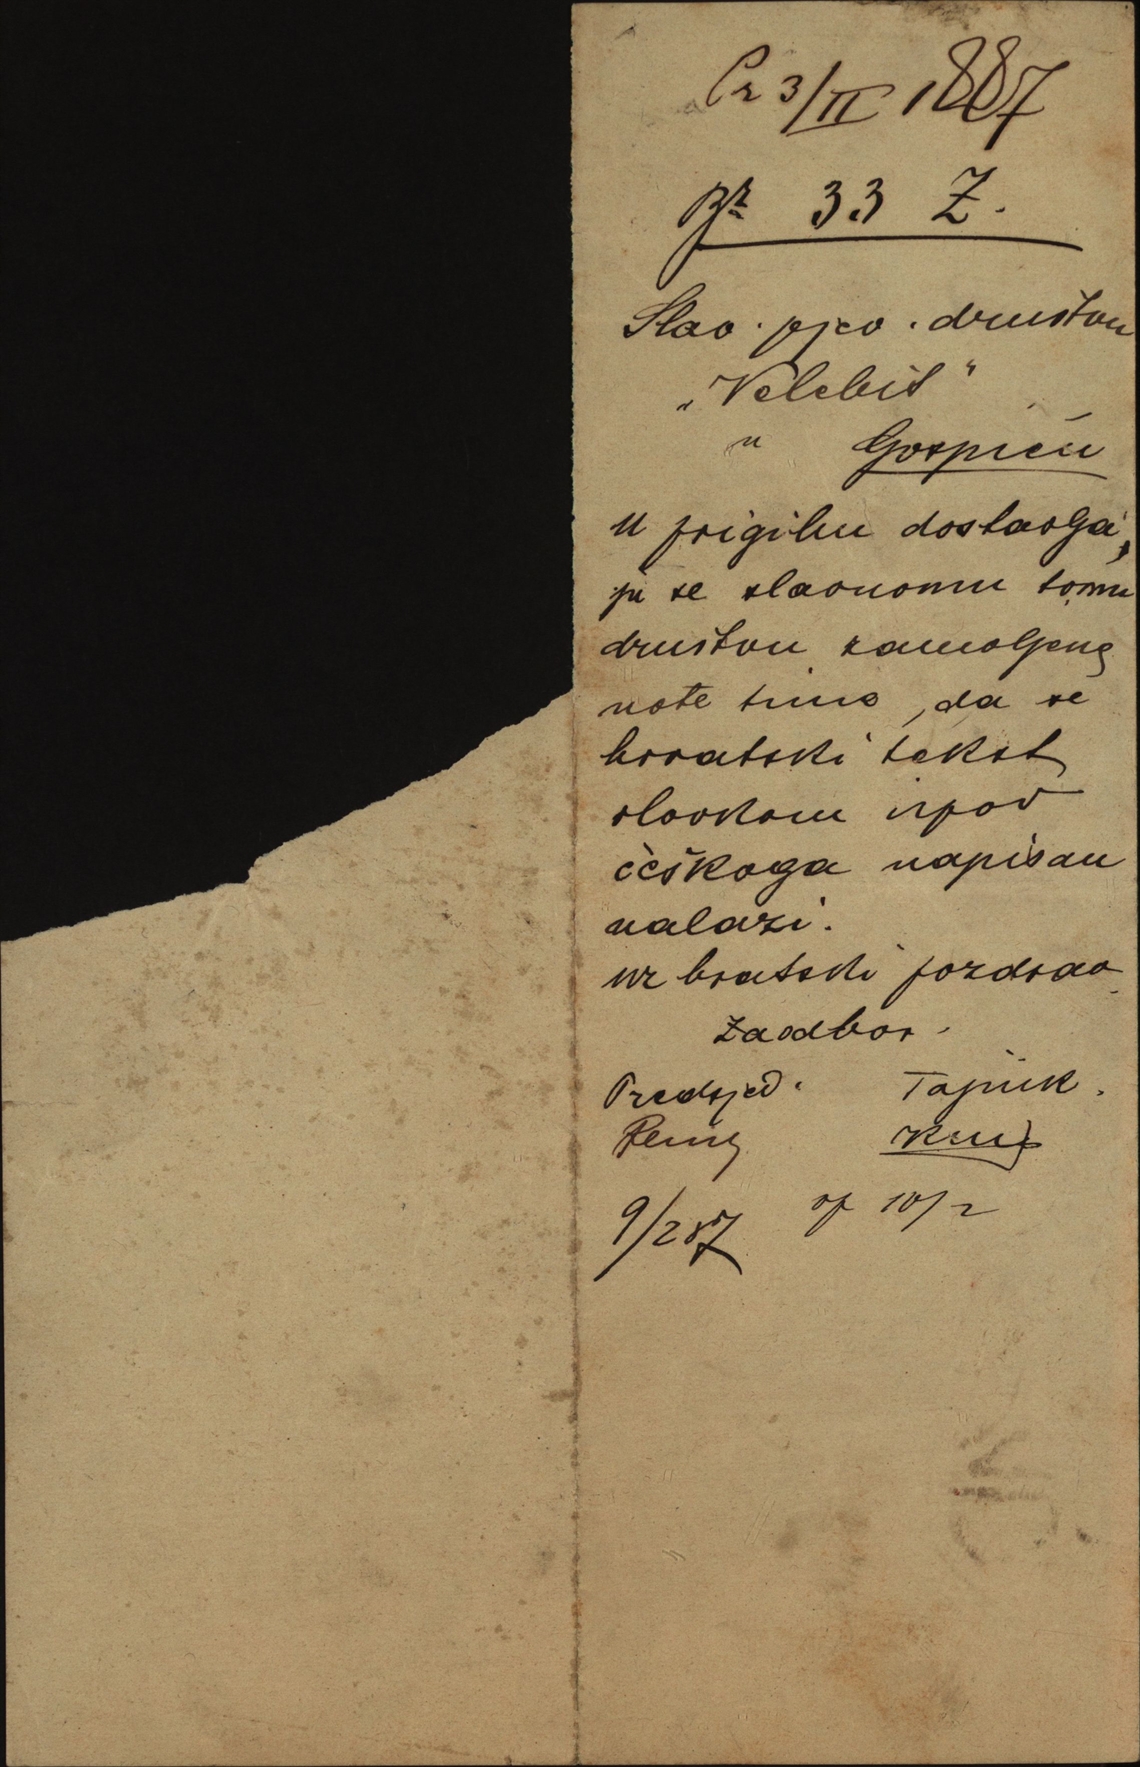 Pr 3/II 1887
Br 33 Z.
Slav. pjev. društvu
„Velebit"
u Gospiću
U prigibu dostavlja
ju se slavnomu tomu
društvu zamoljene
note time, da se
hrvatski tekst
olovkom ispod
češkoga napisan
nalazi.
Uz bratski pozdrav
Za odbor.
Predsjed. Tajnik.
9/2 87 op 10/2